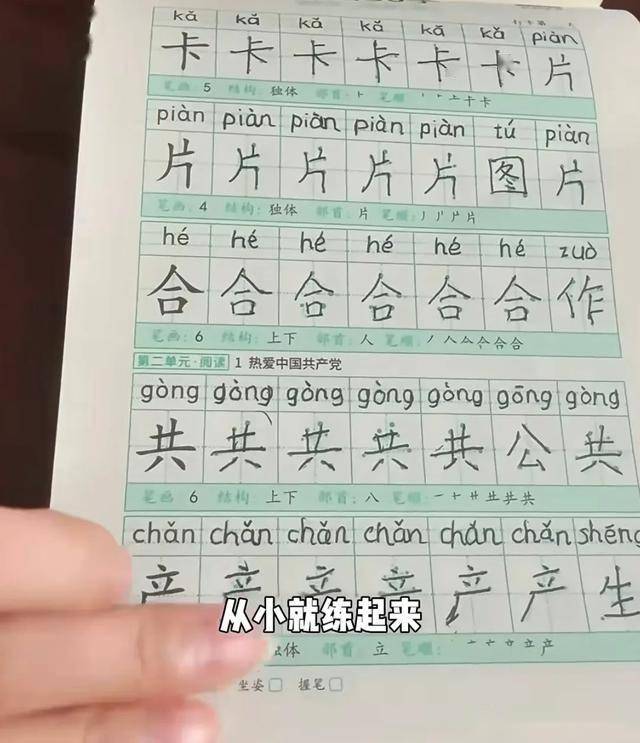 kǎ kǎ kǎ kǎ kǎ kǎ piàn
卡 卡 卡 卡 卡 卡 片
笔画：5 结构：独体 部首：卜 笔顺：
piàn piàn piàn piàn piàn tú piàn
片 片 片 片 片 图 片
笔画：4 结构：独体 部首：片 笔顺：
hé hé hé hé hé hé zuò
合 合 合 合 合 合 作
笔画：6 结构：上下 部首：人 笔顺：
第二单元·阅读 1 热爱中国共产党
gòng gòng gòng gòng gòng gōng gòng
共 共 共 共 共 公 共
笔画：6 结构：上下 部首：八 笔顺：
chǎn chǎn chǎn chǎn chǎn chǎn shēng
产 产 产 产 产 产 生
从小就练起来
体 部首：立 笔顺：
坐姿 握笔